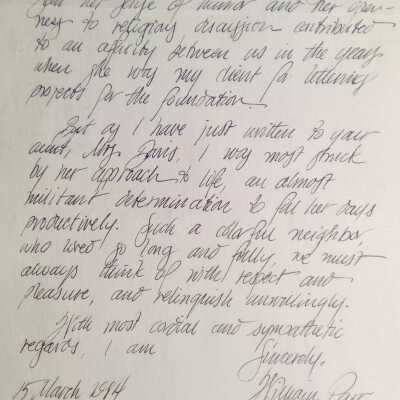 her sense of humor and her open-
ness to religious discussion contributed
to an affinity between us in the years
when she was my client for lettering
projects for the foundation.
But as I have just written to your
aunt, Mrs. Davis, I was most struck
by her approach to life, an almost
militant determination to fill her days
productively. Such a cheerful neighbor,
who lived so long and fully, we must
always think of with respect and
pleasure, and relinquish unwillingly.
With most cordial and sympathetic
regards, I am
Sincerely,
15 March 1984 William